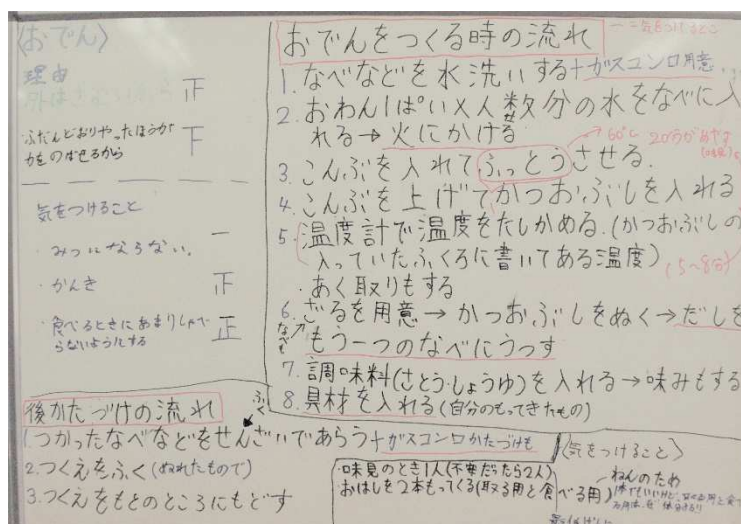 〈おでん〉
理由
外は 正
ふだんどおりやったほうが 下
力をのばせるから
気をつけること
・みつにならない。 一
・かんき 正
・食べるときにあまりしゃべ 正
らないようにする
おでんをつくる時の流れ
1. なべなどを水洗いする+ガスコンロ用意
2. おわん1ぱい×人数分の水をなべに入
れる→火にかける
60℃ 20分
3. こんぶを入れてふっとうさせる.
4. こんぶを上げてかつおぶしを入れる
5. 温度計で温度をたしかめる.(かつおぶしの
入っていたふくろに書いてある温度)
(5~8分)
・あく取りもする
6. ざるを用意→かつおぶしをぬく→だしを
なべも
もう一つのなべにうつす
7. 調味料(さとう・しょうゆ)を入れる→味みもする
8. 具材を入れる(自分のもってきたもの)
後かたづけの流れ
ふく
1. つかったなべなどをせんざいであらう+ガスコンロかたづけも
2. つくえをふく(ぬれたもので)
3. つくえをもとのところにもどす
〈気をつけること〉
・味見のとき1人(不安だったら2人)
・おはしを2本もってくる(取る用と食べる用)
ねんのため